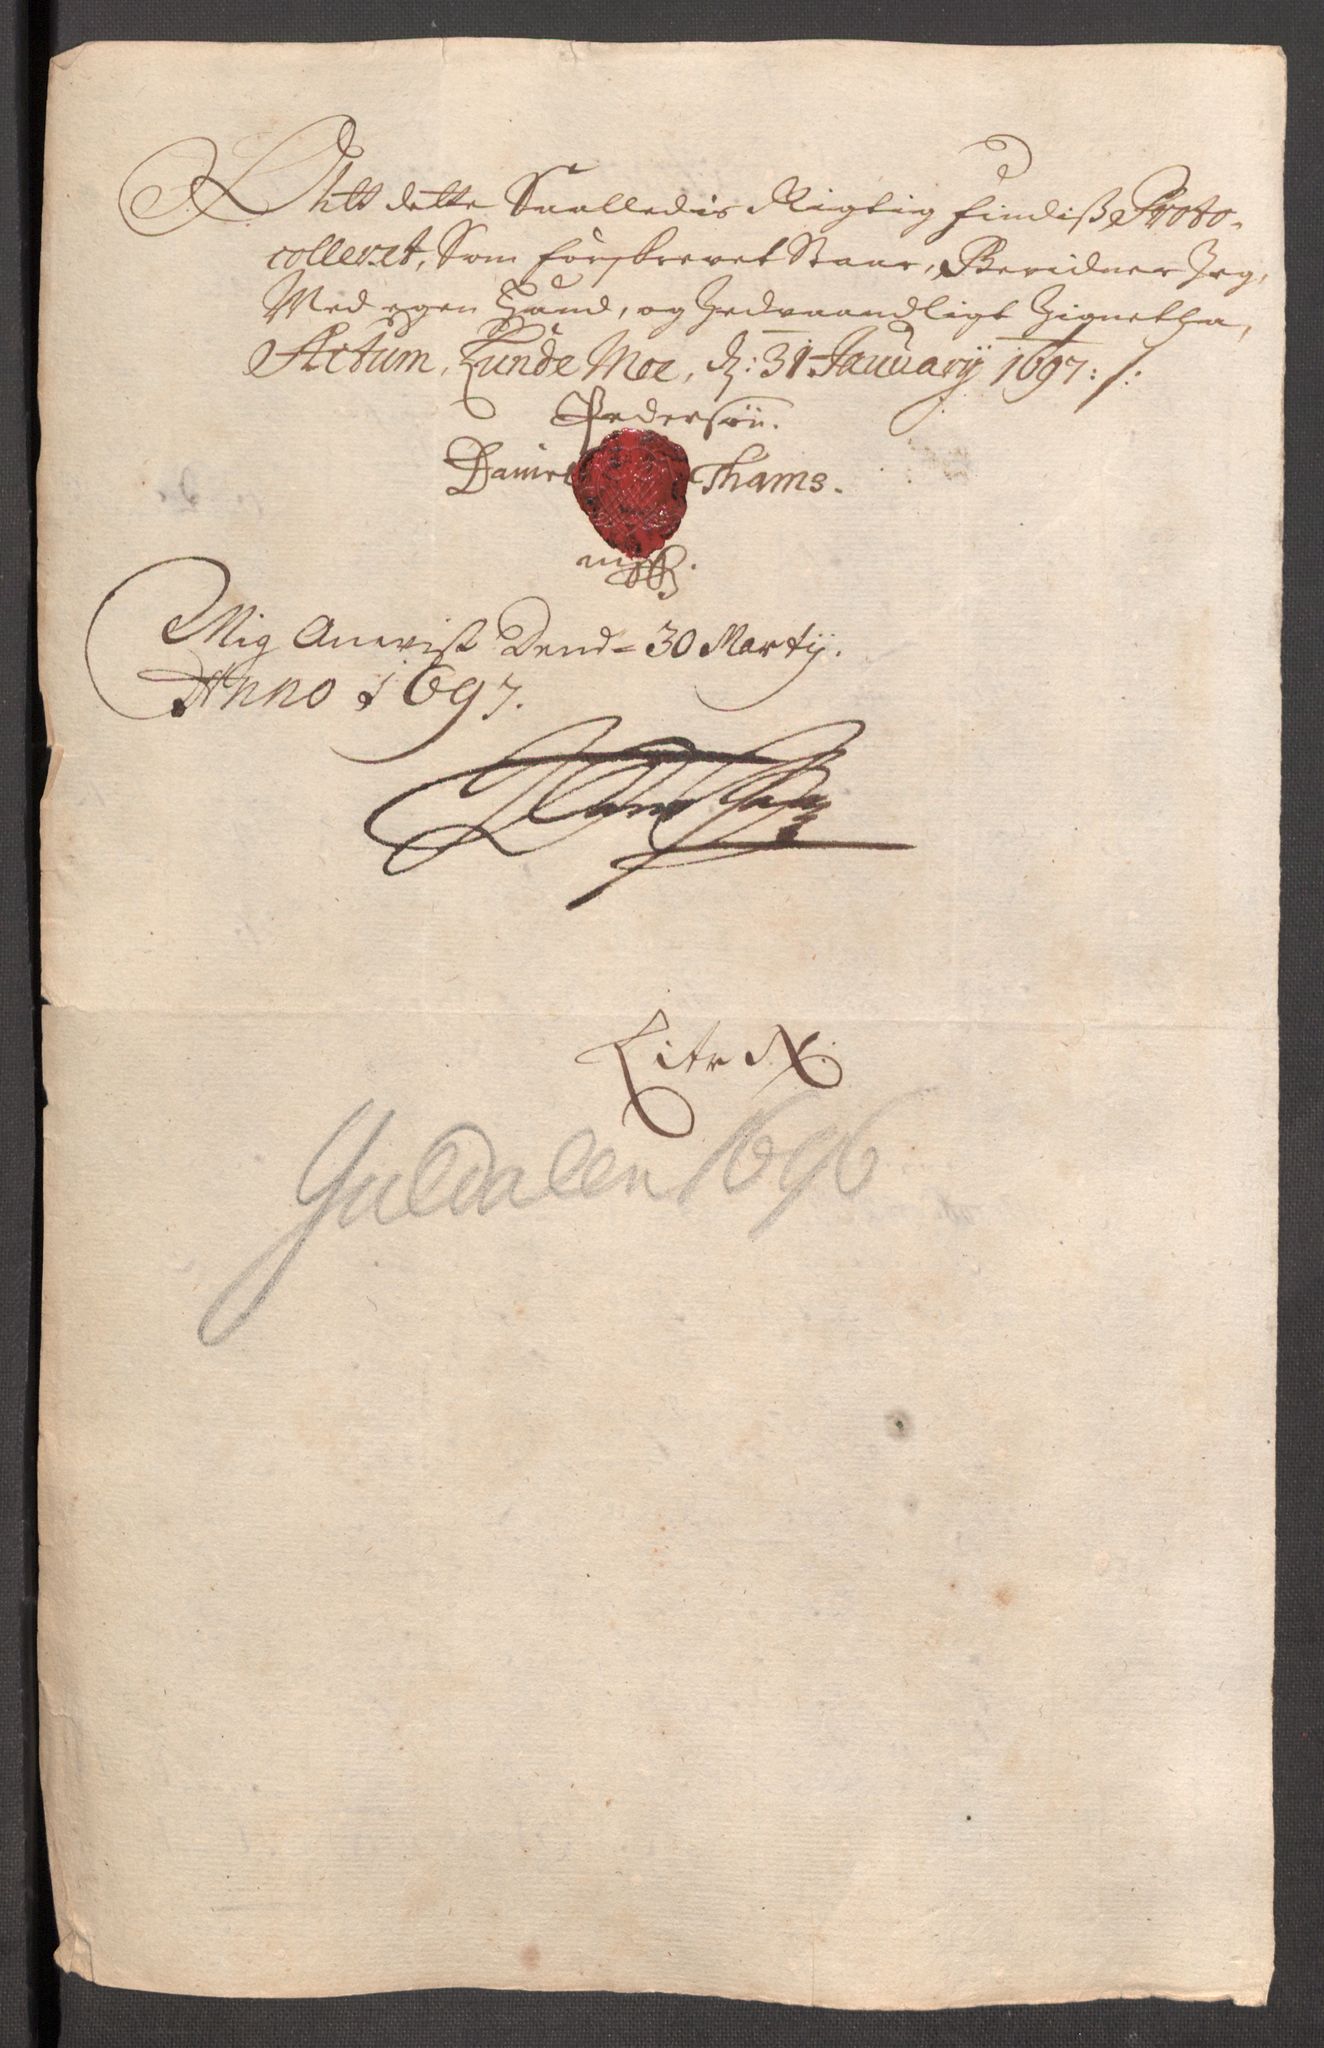 Att dette Saalledis Rigtig findiß Proto-
colleret, Som forskrevet Staar, Bevidner Jeg,
Med egen Haand, og hedvaandligt Zignetha,
Actum, Lunde Moe, d: 31 January 1697:/:
Pedersøn.
Daniel Thams.
mpp
Mig Anvist Dend 30 Martij.
Anno 1697.
Litr N.
Guldalen 1696